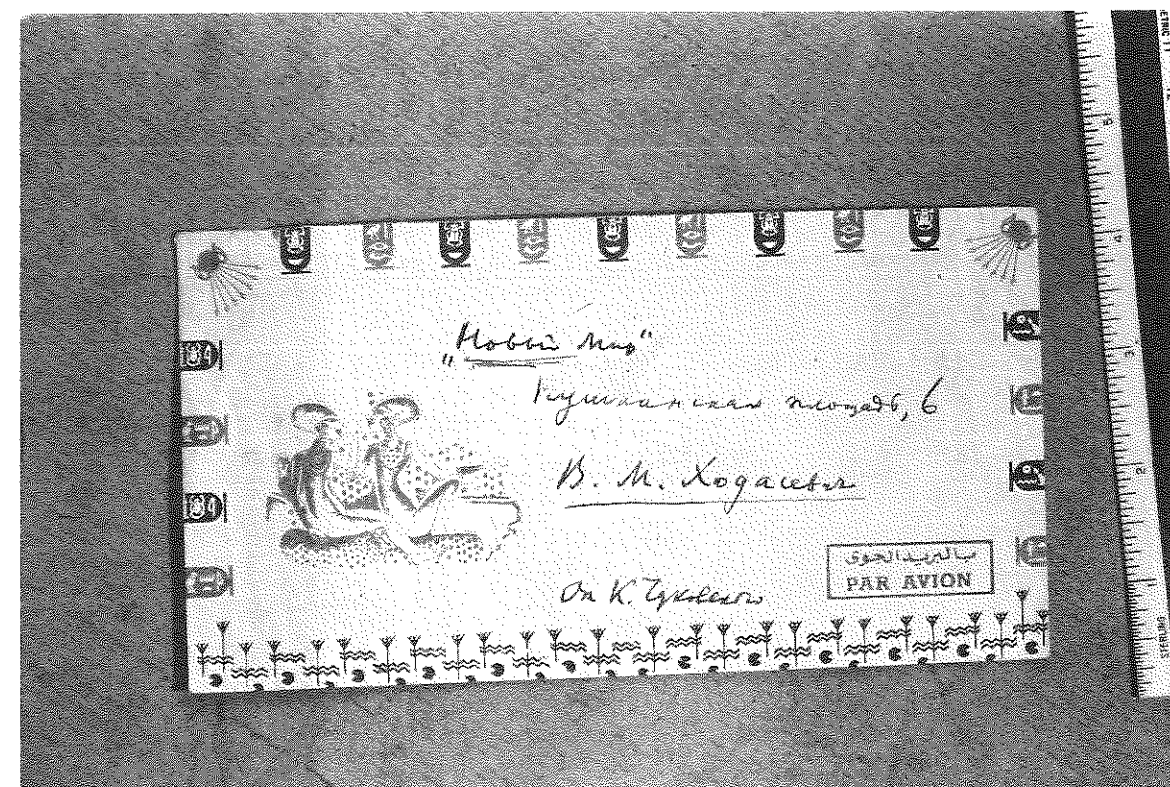 „Новый мир“
Пушкинская площадь, 6
В. М. Ходасевич
От К. Чуковского
بالبريد الجوى
PAR AVION
5
4
3
2